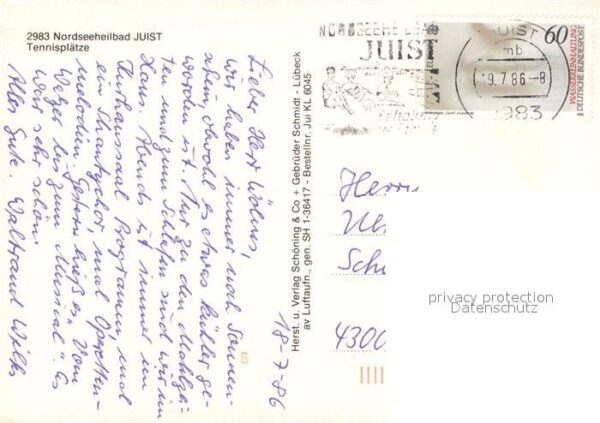 2983 Nordseeheilbad JUIST
Tennisplätze
18-7-86
Lieber Herr Wölms,
wir haben immer noch Sonnen-
schein, obwohl es etwas kühler ge-
worden ist. Nur zu den Mahlzei-
ten und zum Schlafen sind wir im
Haus. Abends ist immer im
Kurhaussaal Programm, mal
ein Shantychor, mal Operetten-
melodien. Gestern hieß es "Vom
Walzer bis zum Musical". Es
war sehr schön.
Alles Gute. Waltraud Wilks
Herst. u. Verlag Schöning & Co + Gebrüder Schmidt - Lübeck
av Luftaufn., gen. SH 1-36417 - Bestellnr. Jui KL 6045
5
NORDSEEHEILBAD
JUIST
Erholung
JUIST
mb
19.7.86-8
2983
60
WASSERREINHALTUNG
DEUTSCHE BUNDESPOST
Herrn
Sch
4300
privacy protection
Datenschutz